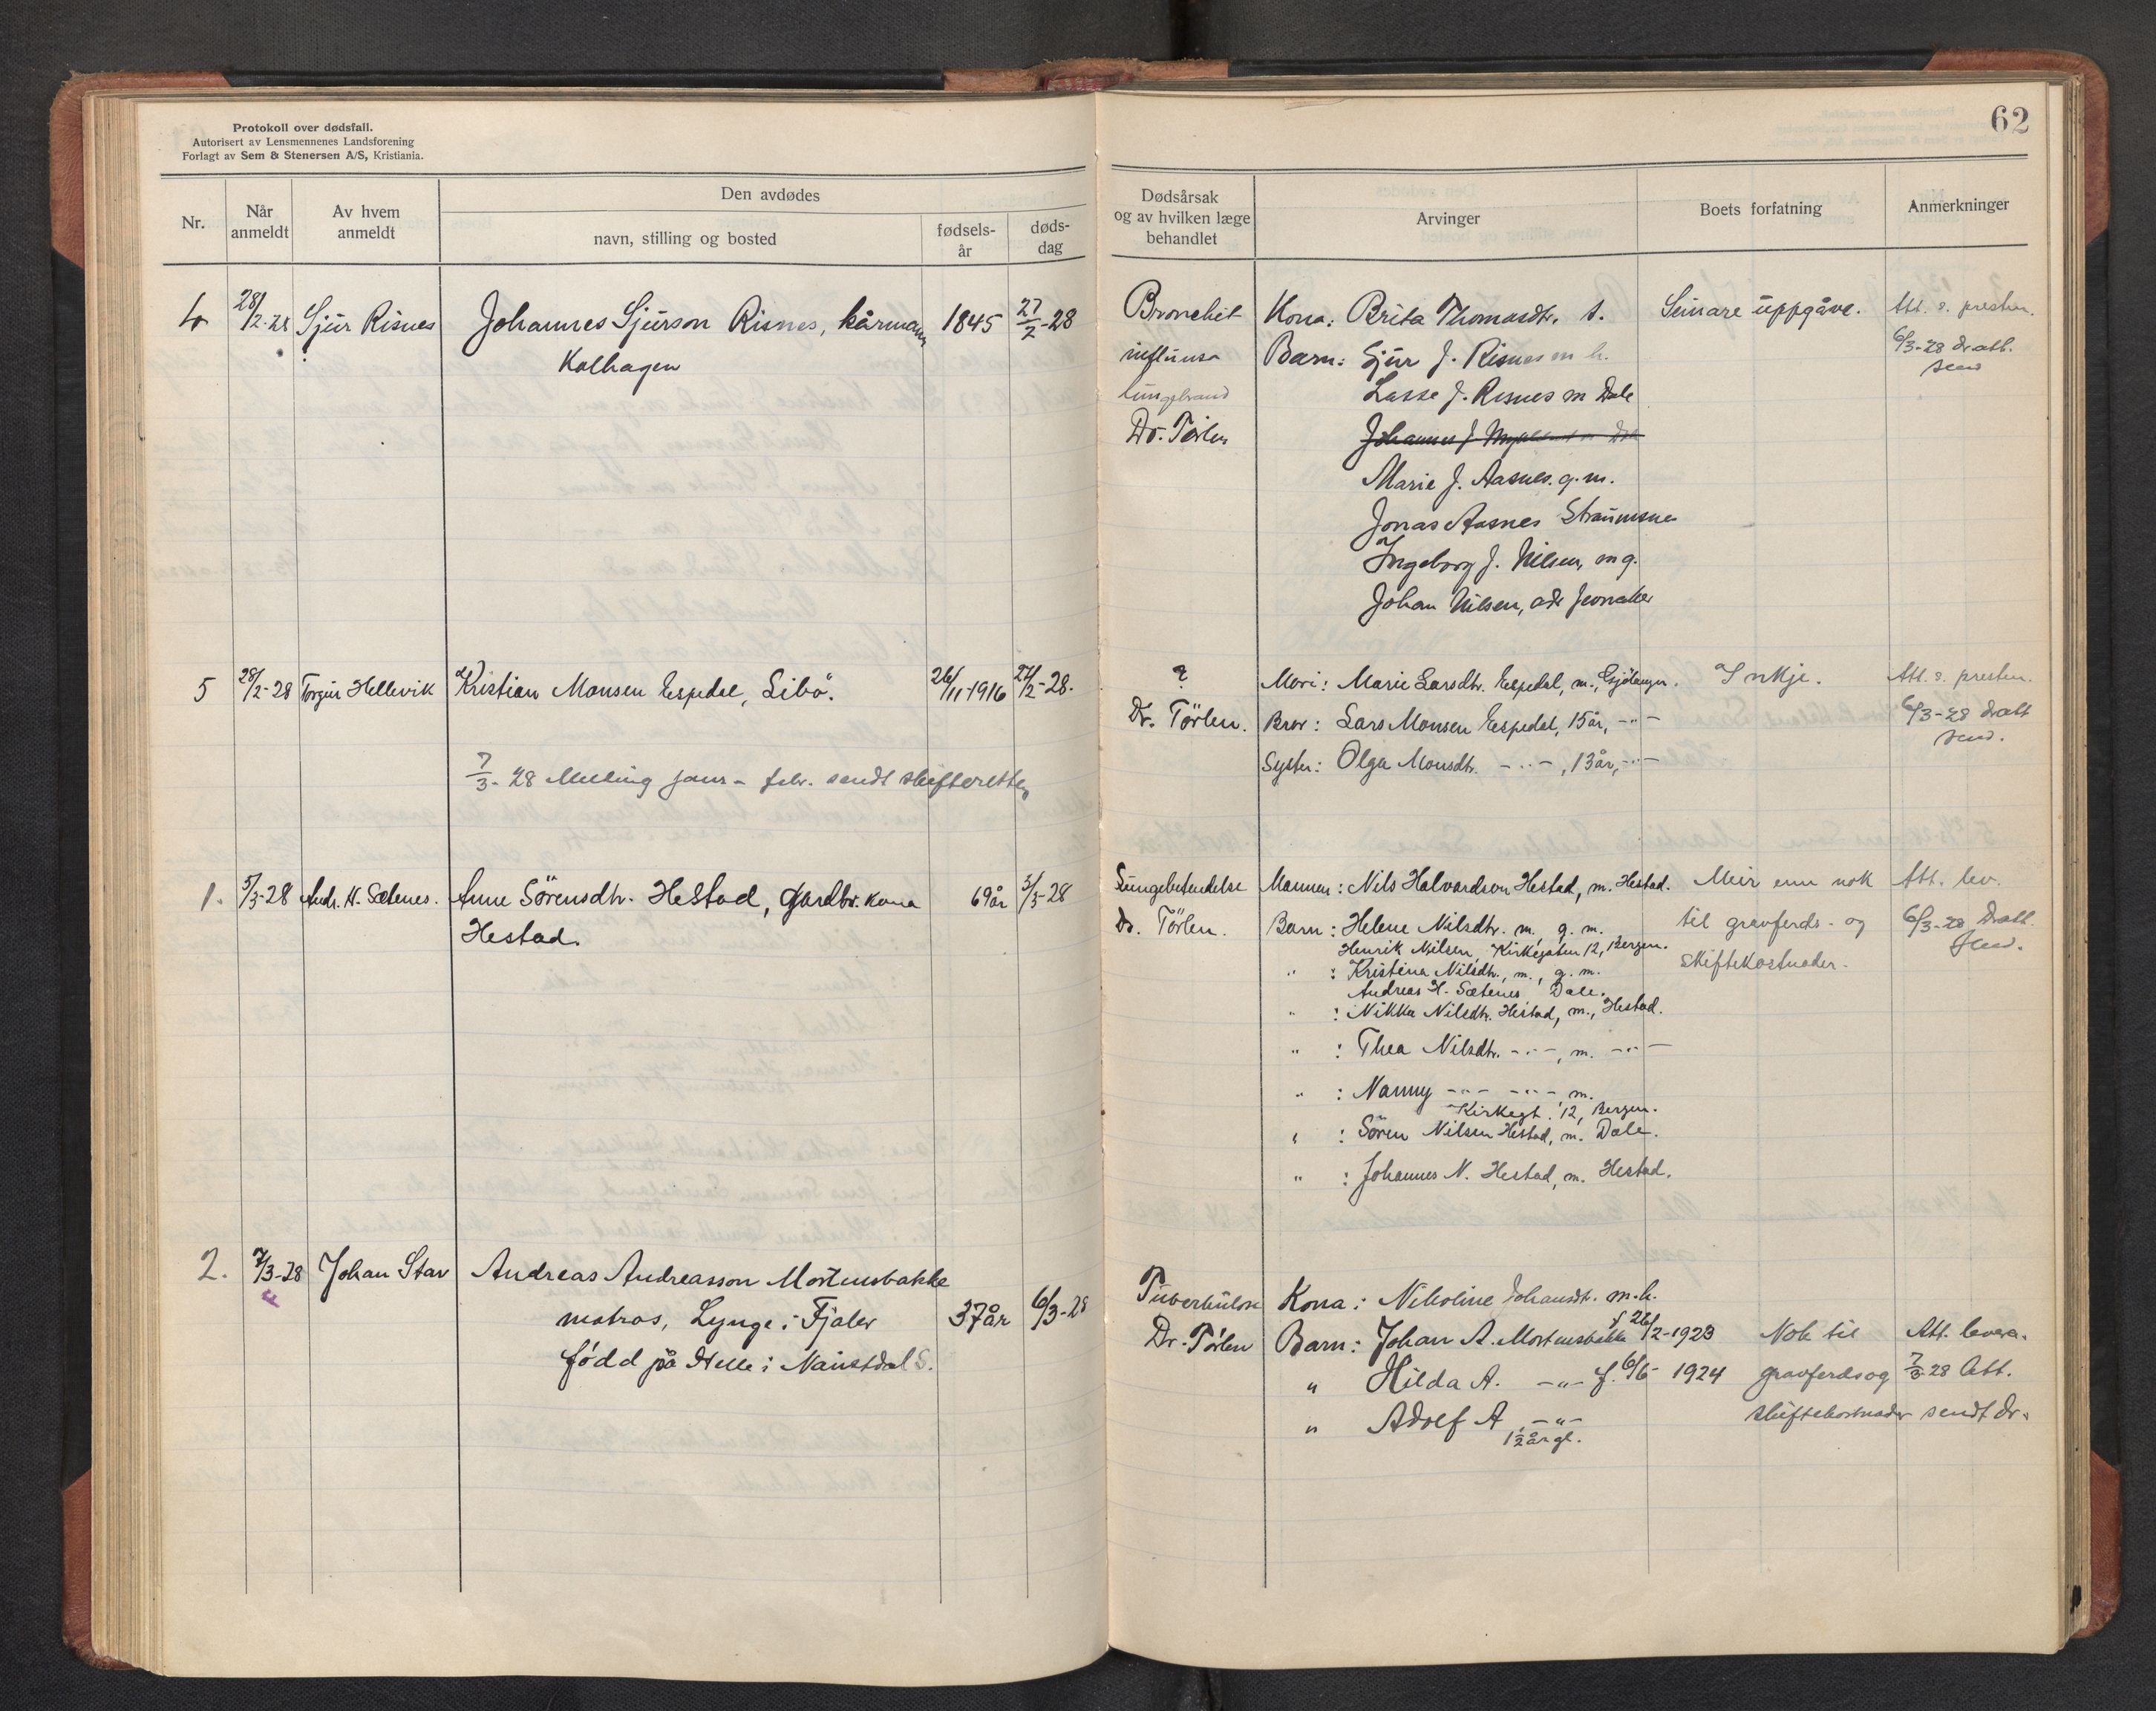 Protokoll over dødsfall.
Autorisert av Lensmennenes Landsforening
Forlagt av Sem & Stenersen A/S, Kristiania.
Nr.
Når anmeldt
Av hvem anmeldt
Den avdødes
navn, stilling og bosted
fødsels-år
døds-dag
62
Dødsårsak og av hvilken læge behandlet
Arvinger
Boets forfatning
Anmerkninger
4 28/2-28 Sjur Risnes Johannes Sjurson Risnes, kårmann 1845 27/2-28
Kolhagen
Bronchit Kona: Brita Thomasdtr. s. Seinare uppgåve. Att. s. presten.
influensa Barn: Sjur J. Risnes m h. 6/3-28 dr att.
lungebrand Lasse J. Risnes m Dale send
Dr. Törlen Johannes J
Marie J. Aasnes. g. m.
Jonas Aasnes Straumsnes
Ingeborg J. Nilsen, m g.
Johan Nilsen, adr
5 28/2-28 Torgür Hellevik Kristian Monsen Espedal, Libö. 26/11-1916 27/2-28.
? Mori: Marie Larsdtr. Espedal, m., Gjölanger. Inkje. Att. s. presten.
Dr. Törlen. Bror: Lars Monsen Espedal, 15 år, -"- 6/3-28 dr att
Syster: Olga Monsdtr. -"-, 13 år, -"- send.
7/3-28 Melding janr - febr. sendt skifteretten
1. 5/3-28 Andr. H. Sætenes. Anne Sörensdtr. Hestad, gardbr. kona 69 år 3/3-28
Hestad.
Lungebetendelse Mannen: Nils Halvardson Hestad, m. Hestad. Meir enn nok Att. lev.
Dr. Törlen. Barn: Helene Nilsdtr. m, g. m. til gravferds- og 6/3-28 Dratt.
Henrik Nilsen, Kirkegaten 12, Bergen. send.
" : Kristina Nilsdtr., m., g. m. skiftekostnader.
Andreas H. Sætenes Dale.
" : Nikka Nilsdtr. Hestad, m., Hestad.
" : Thea Nilsdtr. -"-, m. -"-
" : Nanny -"- -"- m.
Kirkegt. 12, Bergen.
" : Sören Nilsen Hestad, m. Dale.
" : Johannes N. Hestad, m. Hestad.
2. 7/3-28 Johan Stav Andreas Andreasson Mortensbakke
F
matros, Lynge i Fjaler 37 år 6/3-28
född på Helle i Naustdal S.
Tuberkulose Kona: Nikoline Johansdt. m. h.
Dr. Törlen Barn: Johan A. Mortensbakke f 26/2-1923 Nok til Att. levra.
" Hilda A. -"- f. 6/6-1924 gravferds og 7/3-28 Att.
" Adolf A -"- skiftekostnader sendt dr.
1 1/2 år gl.